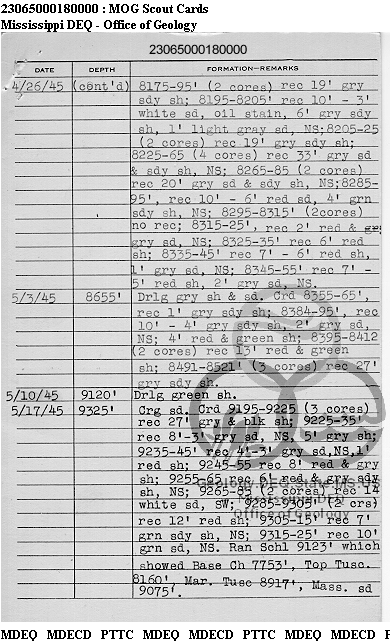 23065000180000 : MOG Scout Cards
Mississippi DEQ - Office of Geology
23065000180000
DATE DEPTH FORMATION—REMARKS
4/26/45 (cont'd) 8175-95' (2 cores) rec 19' gry
sdy sh; 8195-8205' rec 10' - 3'
white sd, oil stain, 6' gry sdy
sh, 1' light gray sd, NS;8205-25
(2 cores) rec 19' gry sdy sh;
8225-65 (4 cores) rec 33' gry sd
& sdy sh, NS; 8265-85 (2 cores)
rec 20' gry sd & sdy sh, NS;8285-
95', rec 10' - 6' red sd, 4' grn
sdy sh, NS; 8295-8315' (2cores)
no rec; 8315-25', rec 2' red &
gry sd, NS; 8325-35' rec 6' red
sh; 8335-45' rec 7' - 6' red sh,
1' gry sd, NS; 8345-55' rec 7' -
5' red sh, 2' gry sd, NS.
5/3/45 8655' Drlg gry sh & sd. Crd 8355-65',
rec 1' gry sdy sh; 8384-95', rec
10' - 4' gry sdy sh, 2' gry sd,
NS; 4' red & green sh; 8395-8412
(2 cores) rec 13' red & green
sh; 8491-8521' (3 cores) rec 27'
gry sdy sh.
5/10/45 9120' Drlg green sh.
5/17/45 9325' Crg sd. Crd 9195-9225 (3 cores)
rec 27' gry & blk sh; 9225-35'
rec 8'-3' gry sd, NS, 5' gry sh;
9235-45' rec 4'-3' gry sd,NS,1'
red sh; 9245-55 rec 8' red & gry
sh; 9255-65 rec 6' red & gry sdy
sh, NS; 9265-85 (2 cores) rec 14
white sd, SW; 9285-9305' (2 crs)
rec 12' red sh; 9305-15' rec 7'
grn sdy sh, NS; 9315-25' rec 10'
grn sd, NS. Ran Schl 9123' which
showed Base Ch 7753', Top Tusc.
8160', Mar. Tusc 8917', Mass. sd
9075'.
Office of Geology
MDEQ MDECD PTTC MDEQ MDECD PTTC MDEQ MDECD